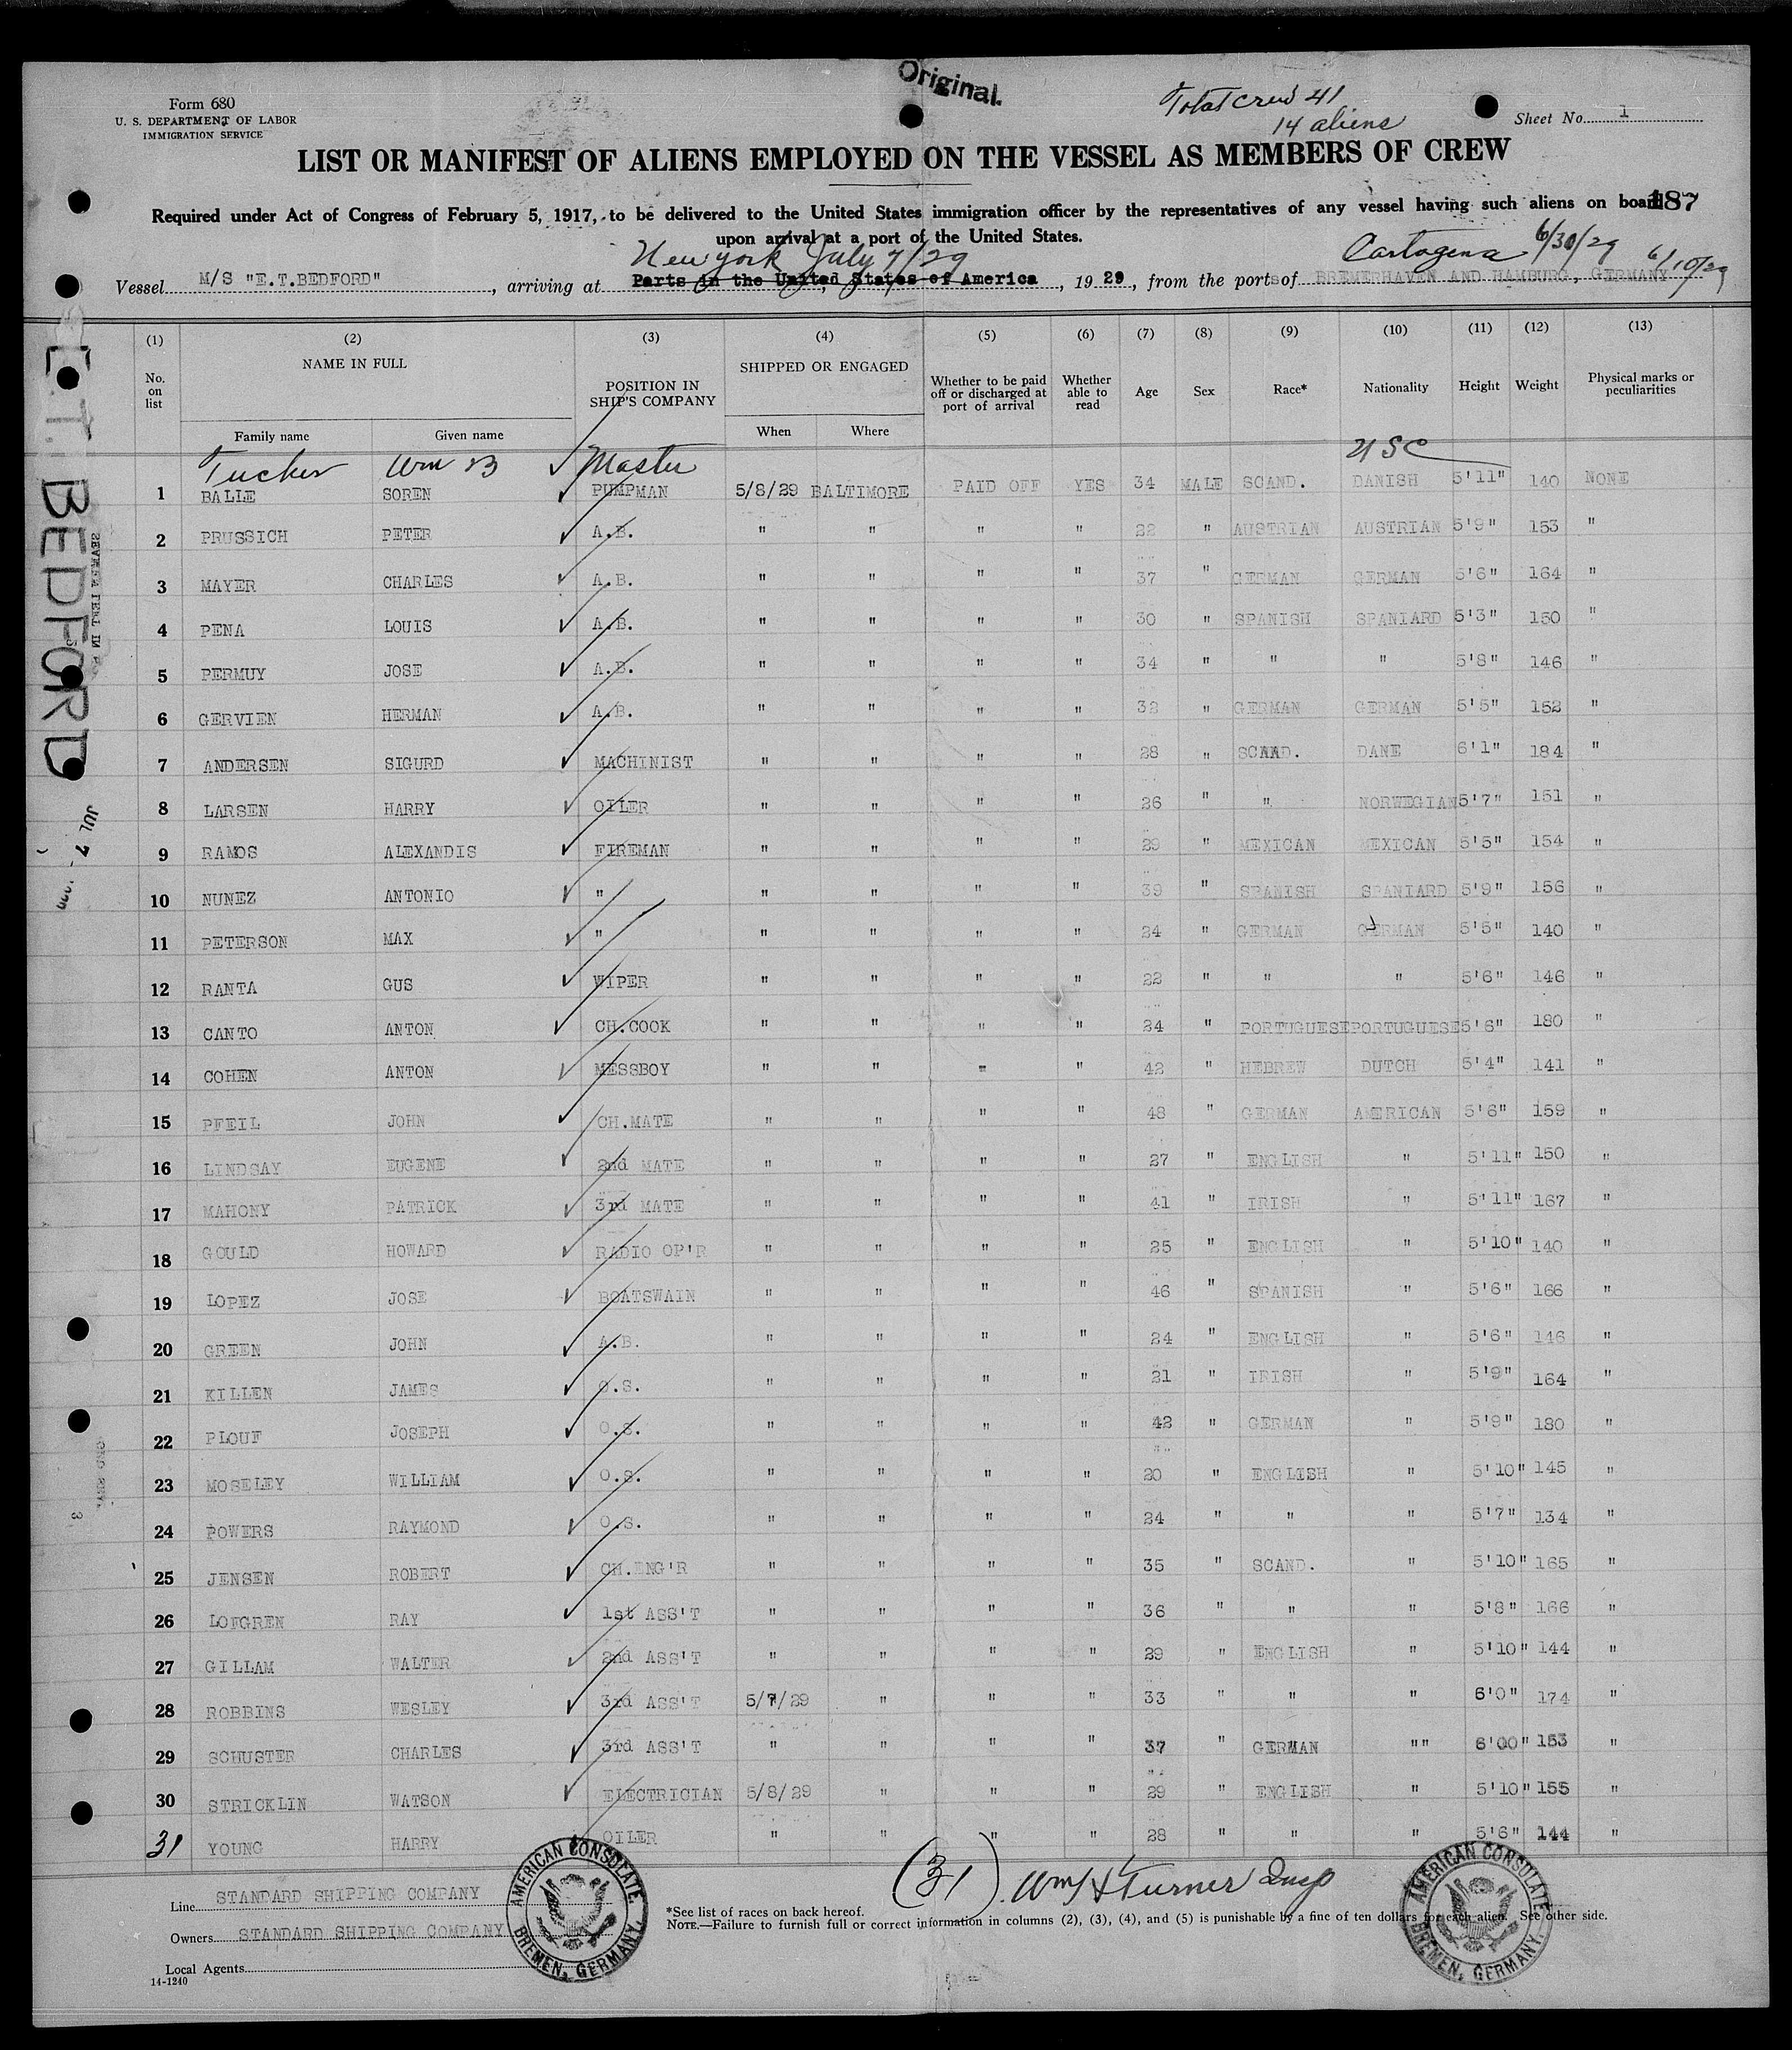 Original.
Total crew 41
14 aliens
Form 680
U. S. DEPARTMENT OF LABOR
IMMIGRATION SERVICE
Sheet No. 1
LIST OR MANIFEST OF ALIENS EMPLOYED ON THE VESSEL AS MEMBERS OF CREW
187
Required under Act of Congress of February 5, 1917, to be delivered to the United States immigration officer by the representatives of any vessel having such aliens on board
upon arrival at a port of the United States.
New york July 7/29 Cartagena 6/30/29 6/10/29
Vessel M/S "E.T.BEDFORD", arriving at Ports in the United States of America, 1929, from the ports of BREMERHAVEN AND HAMBURG, GERMANY
(1) (2) (3) (4) (5) (6) (7) (8) (9) (10) (11) (12) (13)
No. on list NAME IN FULL POSITION IN SHIP'S COMPANY SHIPPED OR ENGAGED Whether to be paid off or discharged at port of arrival Whether able to read Age Sex Race* Nationality Height Weight Physical marks or peculiarities
Family name Given name When Where
Tucker Wm B Master USC
1 BALLE SOREN PUMPMAN 5/8/29 BALTIMORE PAID OFF YES 34 MALE SCAND. DANISH 5'11" 140 NONE
2 PRUSSICH PETER A.B. " " " " 22 " AUSTRIAN AUSTRIAN 5'9" 153 "
3 MAYER CHARLES A.B. " " " " 37 " GERMAN GERMAN 5'6" 164 "
4 PENA LOUIS A.B. " " " " 30 " SPANISH SPANIARD 5'3" 150 "
5 PERMUY JOSE A.B. " " " " 34 " " " 5'8" 146 "
6 GERVIEN HERMAN A.B. " " " " 32 " GERMAN GERMAN 5'5" 152 "
7 ANDERSEN SIGURD MACHINIST " " " " 28 " SCAND. DANE 6'1" 184 "
8 LARSEN HARRY OILER " " " " 26 " " NORWEGIAN 5'7" 151 "
9 RAMOS ALEXANDIS FIREMAN " " " " 29 " MEXICAN MEXICAN 5'5" 154 "
10 NUNEZ ANTONIO " " " " " 39 " SPANISH SPANIARD 5'9" 156 "
11 PETERSON MAX " " " " " 24 " GERMAN GERMAN 5'5" 140 "
12 RANTA GUS WIPER " " " " 22 " " " 5'6" 146 "
13 CANTO ANTON CH.COOK " " " " 24 " PORTUGUESE PORTUGUESE 5'6" 180 "
14 COHEN ANTON MESSBOY " " " " 42 " HEBREW DUTCH 5'4" 141 "
15 PFEIL JOHN CH.MATE " " " " 48 " GERMAN AMERICAN 5'6" 159 "
16 LINDSAY EUGENE 2nd MATE " " " " 27 " ENGLISH " 5'11" 150 "
17 MAHONY PATRICK 3rd MATE " " " " 41 " IRISH " 5'11" 167 "
18 GOULD HOWARD RADIO OP'R " " " " 25 " ENGLISH " 5'10" 140 "
19 LOPEZ JOSE BOATSWAIN " " " " 46 " SPANISH " 5'6" 166 "
20 GREEN JOHN A.B. " " " " 24 " ENGLISH " 5'6" 146 "
21 KILLEN JAMES O.S. " " " " 21 " IRISH " 5'9" 164 "
22 PLOUF JOSEPH O.S. " " " " 42 " GERMAN " 5'9" 180 "
23 MOSELEY WILLIAM O.S. " " " " 20 " ENGLISH " 5'10" 145 "
24 POWERS RAYMOND O.S. " " " " 24 " " " 5'7" 134 "
25 JENSEN ROBERT CH.ENG'R " " " " 35 " SCAND. " 5'10" 165 "
26 LOFGREN RAY 1st ASS'T " " " " 36 " " " 5'8" 166 "
27 GILLAM WALTER 2nd ASS'T " " " " 29 " ENGLISH " 5'10" 144 "
28 ROBBINS WESLEY 3rd ASS'T 5/7/29 " " " 33 " " " 6'0" 174 "
29 SCHUSTER CHARLES 3rd ASS'T " " " " 37 " GERMAN "" 6'00" 153 "
30 STRICKLIN WATSON ELECTRICIAN 5/8/29 " " " 29 " ENGLISH " 5'10" 155 "
31 YOUNG HARRY OILER " " " " 28 " " " 5'6" 144 "
(31) Wm H Turner Insp
Line STANDARD SHIPPING COMPANY
Owners STANDARD SHIPPING COMPANY
Local Agents
14-1240
*See list of races on back hereof.
NOTE.—Failure to furnish full or correct information in columns (2), (3), (4), and (5) is punishable by a fine of ten dollars for each alien. See other side.
AMERICAN CONSULATE. BREMEN, GERMANY.
AMERICAN CONSULATE BREMEN, GERMANY.
E.T. BEDFORD
JUL 7